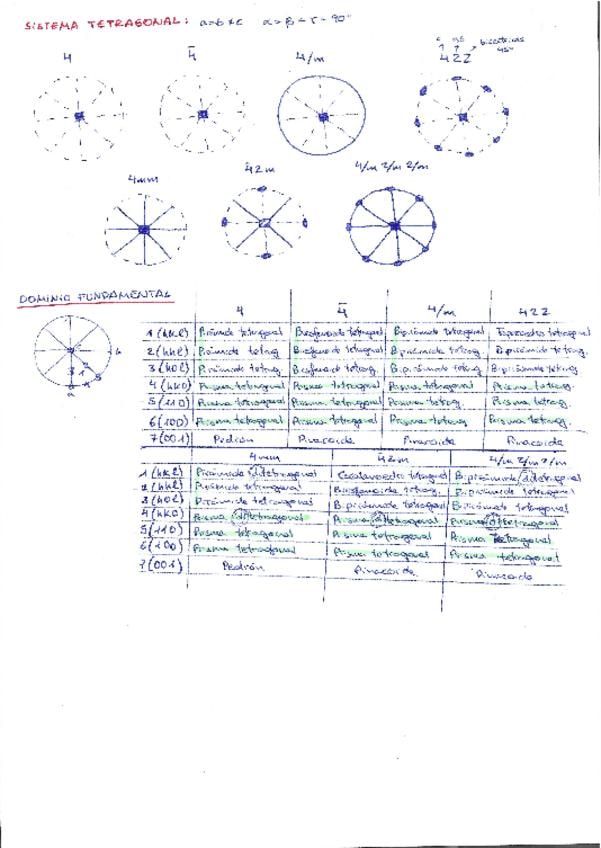 SISTEMA TETRAGONAL: a=b≠c α=β=γ=90°
4 4̅ 4/m 422
bisectrices 45°
4mm 42m 4/m 2/m 2/m
DOMINIO FUNDAMENTAL
4 4̅ 4/m 422
1 (hkl) Pirámide tetragonal Biesfenoide tetragonal Bipirámide tetragonal Trapezoedro tetragonal
2 (hhl) Pirámide tetrag. Biesfenoide tetrag. Bipirámide tetrag. Bipirámide tetrag.
3 (h0l) Pirámide tetrag. Biesfenoide tetrag. Bipirámide tetrag. Bipirámide tetrag.
4 (hk0) Prisma tetragonal Prisma tetragonal Prisma tetragonal Prisma tetrag.
5 (110) Prisma tetragonal Prisma tetragonal Prisma tetrag. Prisma tetrag.
6 (100) Prisma tetragonal Prisma tetragonal Prisma tetrag. Prisma tetrag.
7 (001) Pedrión Pinacoide Pinacoide Pinacoide
4mm 42m 4/m 2/m 2/m
1 (hkl) Pirámide ditetragonal Escalenoedro tetragonal Bipirámide ditetragonal
2 (hhl) Pirámide tetragonal Biesfenoide tetrag. Bipirámide tetragonal
3 (h0l) Pirámide tetragonal Bipirámide tetragonal Bipirámide tetragonal
4 (hk0) Prisma ditetragonal Prisma ditetragonal Prisma ditetragonal
5 (110) Prisma tetragonal Prisma tetragonal Prisma tetragonal
6 (100) Prisma tetragonal Prisma tetragonal Prisma tetragonal
7 (001) Pedrión Pinacoide Pinacoide